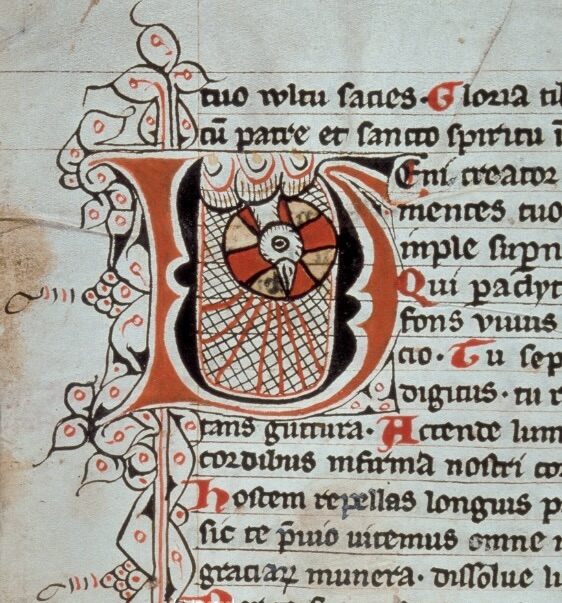 tuo vvltu sacies. Gloria ti
cū patre et sancto spiritu ī
Veni creator
mentes tuo
imple sup̄n
Qui paclyt
fons viuus
cio. Tu sep
digitus. tu
tans guttura. Accende lum
cordibus infirma nostri cor
hostem repellas longius p
sic te p̄uio uitemus omne
graciaꝝ munera. dissolue li